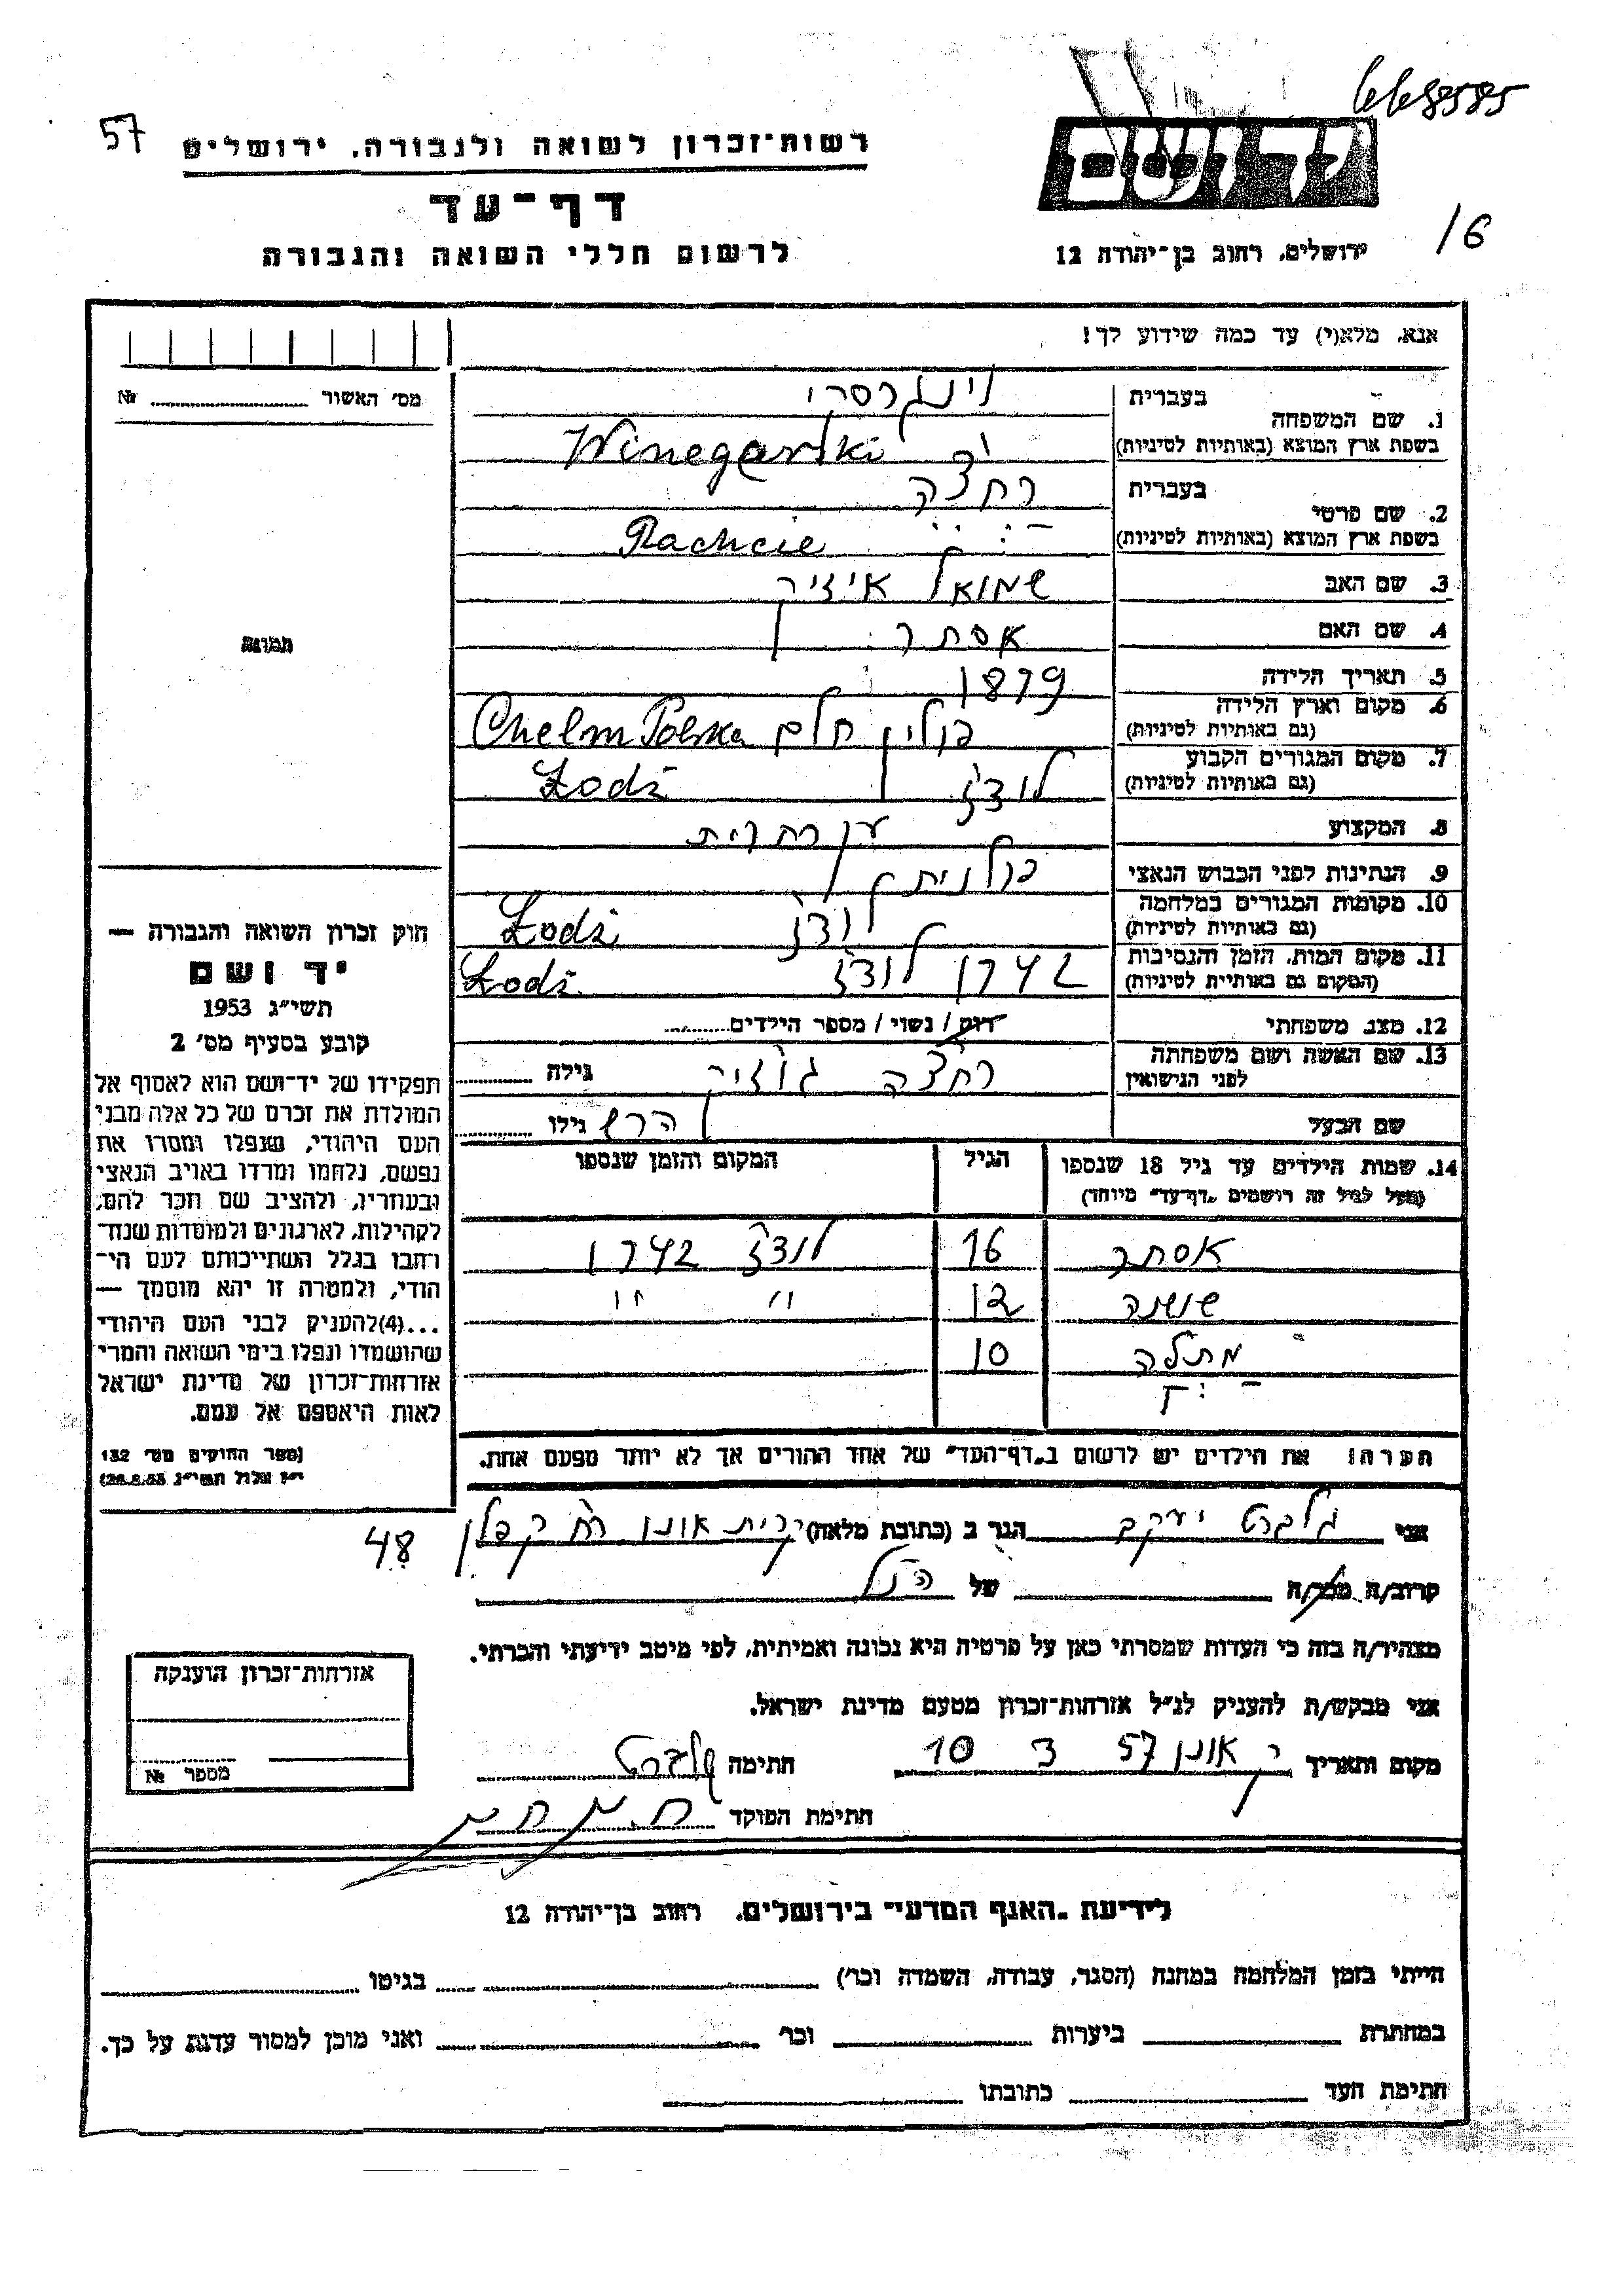 6698585
57
רשות־זכרון לשואה ולגבורה, ירושלים
יד ושם
דף־עד
16
לרשום חללי השואה והגבורה
ירושלים, רחוב בן־יהודה 12
אנא, מלא(י) עד כמה שידוע לך!
מס׳ האשור № 
1. שם המשפחה
בעברית וינגרסקי
בשפת ארץ המוצא (באותיות לטיניות) Winegarski
2. שם פרטי
בעברית רחצ׳ה
בשפת ארץ המוצא (באותיות לטיניות) Rachcie
3. שם האב שמואל אייזיק
4. שם האם אסתר
תמונה
5. תאריך הלידה 1879
6. מקום וארץ הלידה (גם באותיות לטיניות) פולין חלם Chelm Polska
7. מקום המגורים הקבוע (גם באותיות לטיניות) לודז׳ Łodź
8. המקצוע עקרת בית
9. הנתינות לפני הכבוש הנאצי פולנית
10. מקומות המגורים במלחמה (גם באותיות לטיניות) לודז׳ Łodź
11. מקום המות, הזמן והנסיבות (המקום גם באותיות לטיניות) 1942 לודז׳ Łodź
12. מצב משפחתי רווק / נשוי / מספר הילדים
13. שם האשה ושם משפחתה לפני הנישואין רחצ׳ה גוזיק גילה
שם הבעל הרש גילו
14. שמות הילדים עד גיל 18 שנספו הגיל המקום והזמן שנספו
(מעל לגיל זה רושמים „דף־עד״ מיוחד)
אסתר 16 לודז׳ 1942
שושנה 12 " "
מתלה 10
הערה: את הילדים יש לרשום ב„דף־העד״ של אחד ההורים אך לא יותר מפעם אחת.
חוק זכרון השואה והגבורה —
יד ושם
תשי״ג 1953
קובע בסעיף מס׳ 2
תפקידו של יד־ושם הוא לאסוף אל
המולדת את זכרם של כל אלה מבני
העם היהודי, שנפלו ומסרו את
נפשם, נלחמו ומרדו באויב הנאצי
ובעוזריו, ולהציב שם וזכר להם,
לקהילות, לארגונים ולמוסדות שנח־
רבו בגלל השתייכותם לעם הי־
הודי, ולמטרה זו יהא מוסמך —
...(4)להעניק לבני העם היהודי
שהושמדו ונפלו בימי השואה והמרי
אזרחות־זכרון של מדינת ישראל
לאות היאספם אל עמם.
(ספר החוקים מס׳ 132
י״ז אלול תשי״ג 28.8.53)
אני גלברט יעקב הגר ב (כתובת מלאה) קרית אונו רח׳ קפלן 48
קרוב/ה מכר/ה של הנ״ל
מצהיר/ה בזה כי העדות שמסרתי כאן על פרטיה היא נכונה ואמיתית, לפי מיטב ידיעתי והכרתי.
אני מבקש/ת להעניק לנ״ל אזרחות־זכרון מטעם מדינת ישראל.
מקום ותאריך ק אונו 57 3 10 חתימה גלברט
חתימת הפוקד
אזרחות־זכרון הוענקה
מספר №
לידיעת „האגף המדעי״ בירושלים, רחוב בן־יהודה 12
הייתי בזמן המלחמה במחנה (הסגר, עבודה, השמדה וכו׳) בגיטו
במחתרת ביערות וכו׳ ואני מוכן למסור עדות על כך.
חתימת העד כתובתו